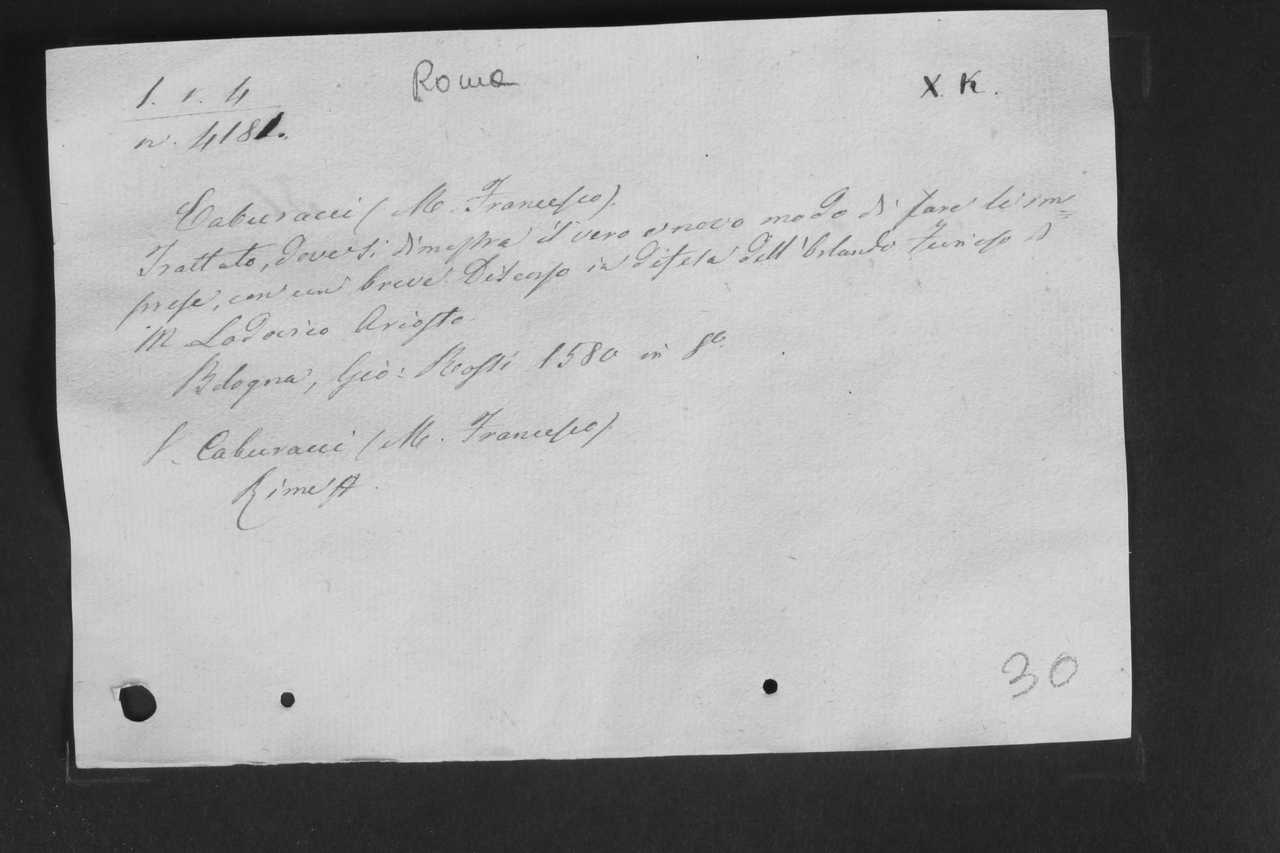 1. v. 4
Roma
X. K.
n. 4181.
Caburacci (M. Francesco).
Trattato, dove si dimostra il vero e novo modo di fare le im=
prese, con un breve Discorso in difesa dell'Orlando Furioso di
M Lodovico Ariosto
Bologna, Gio: Rossi 1580 in 8o.
Caburacci (M. Francesco)
Rime
30